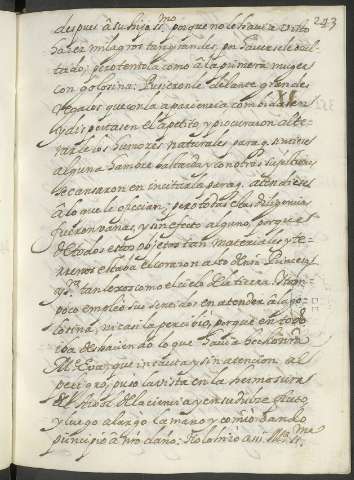 243
despues á su hijo ss.mo porque no le havia visto
hacer milagros tan grandes, por haversele ocul
tado; pero tentola como á la primera muger
con golosina: Pusieronle delante grandes
regalos que con la apariencia combidasen
y dispertasen el apetito, y procuraron alte
rarle los humores naturales para q. sintiese
alguna hambre bastarda y con otras sugestiones
se cansaron en incitarla para q. atendiese
á lo que le ofrecian; pero todas estas diligencias
fueron vanas, y sin efecto alguno, porque
de todos estos objetos tan materiales y te-
rrenos estaba el corazon alto de nra Princesa
y S.ra tan lexos como el cielo de la tierra. Tam
poco empleó sus sentidos en atender á la go
losina, ni casi la percibió, porque en todo
iba deshaciendo lo que havia hecho nra
M.e Eva, que incauta y sin atencion al
peligro, puso la vista en la hermosura
del arbol de la ciencia y en su dulce fruto
y luego alargo la mano y comio dando
principio á nro daño: No lo hizo asi Ma. SS.ma